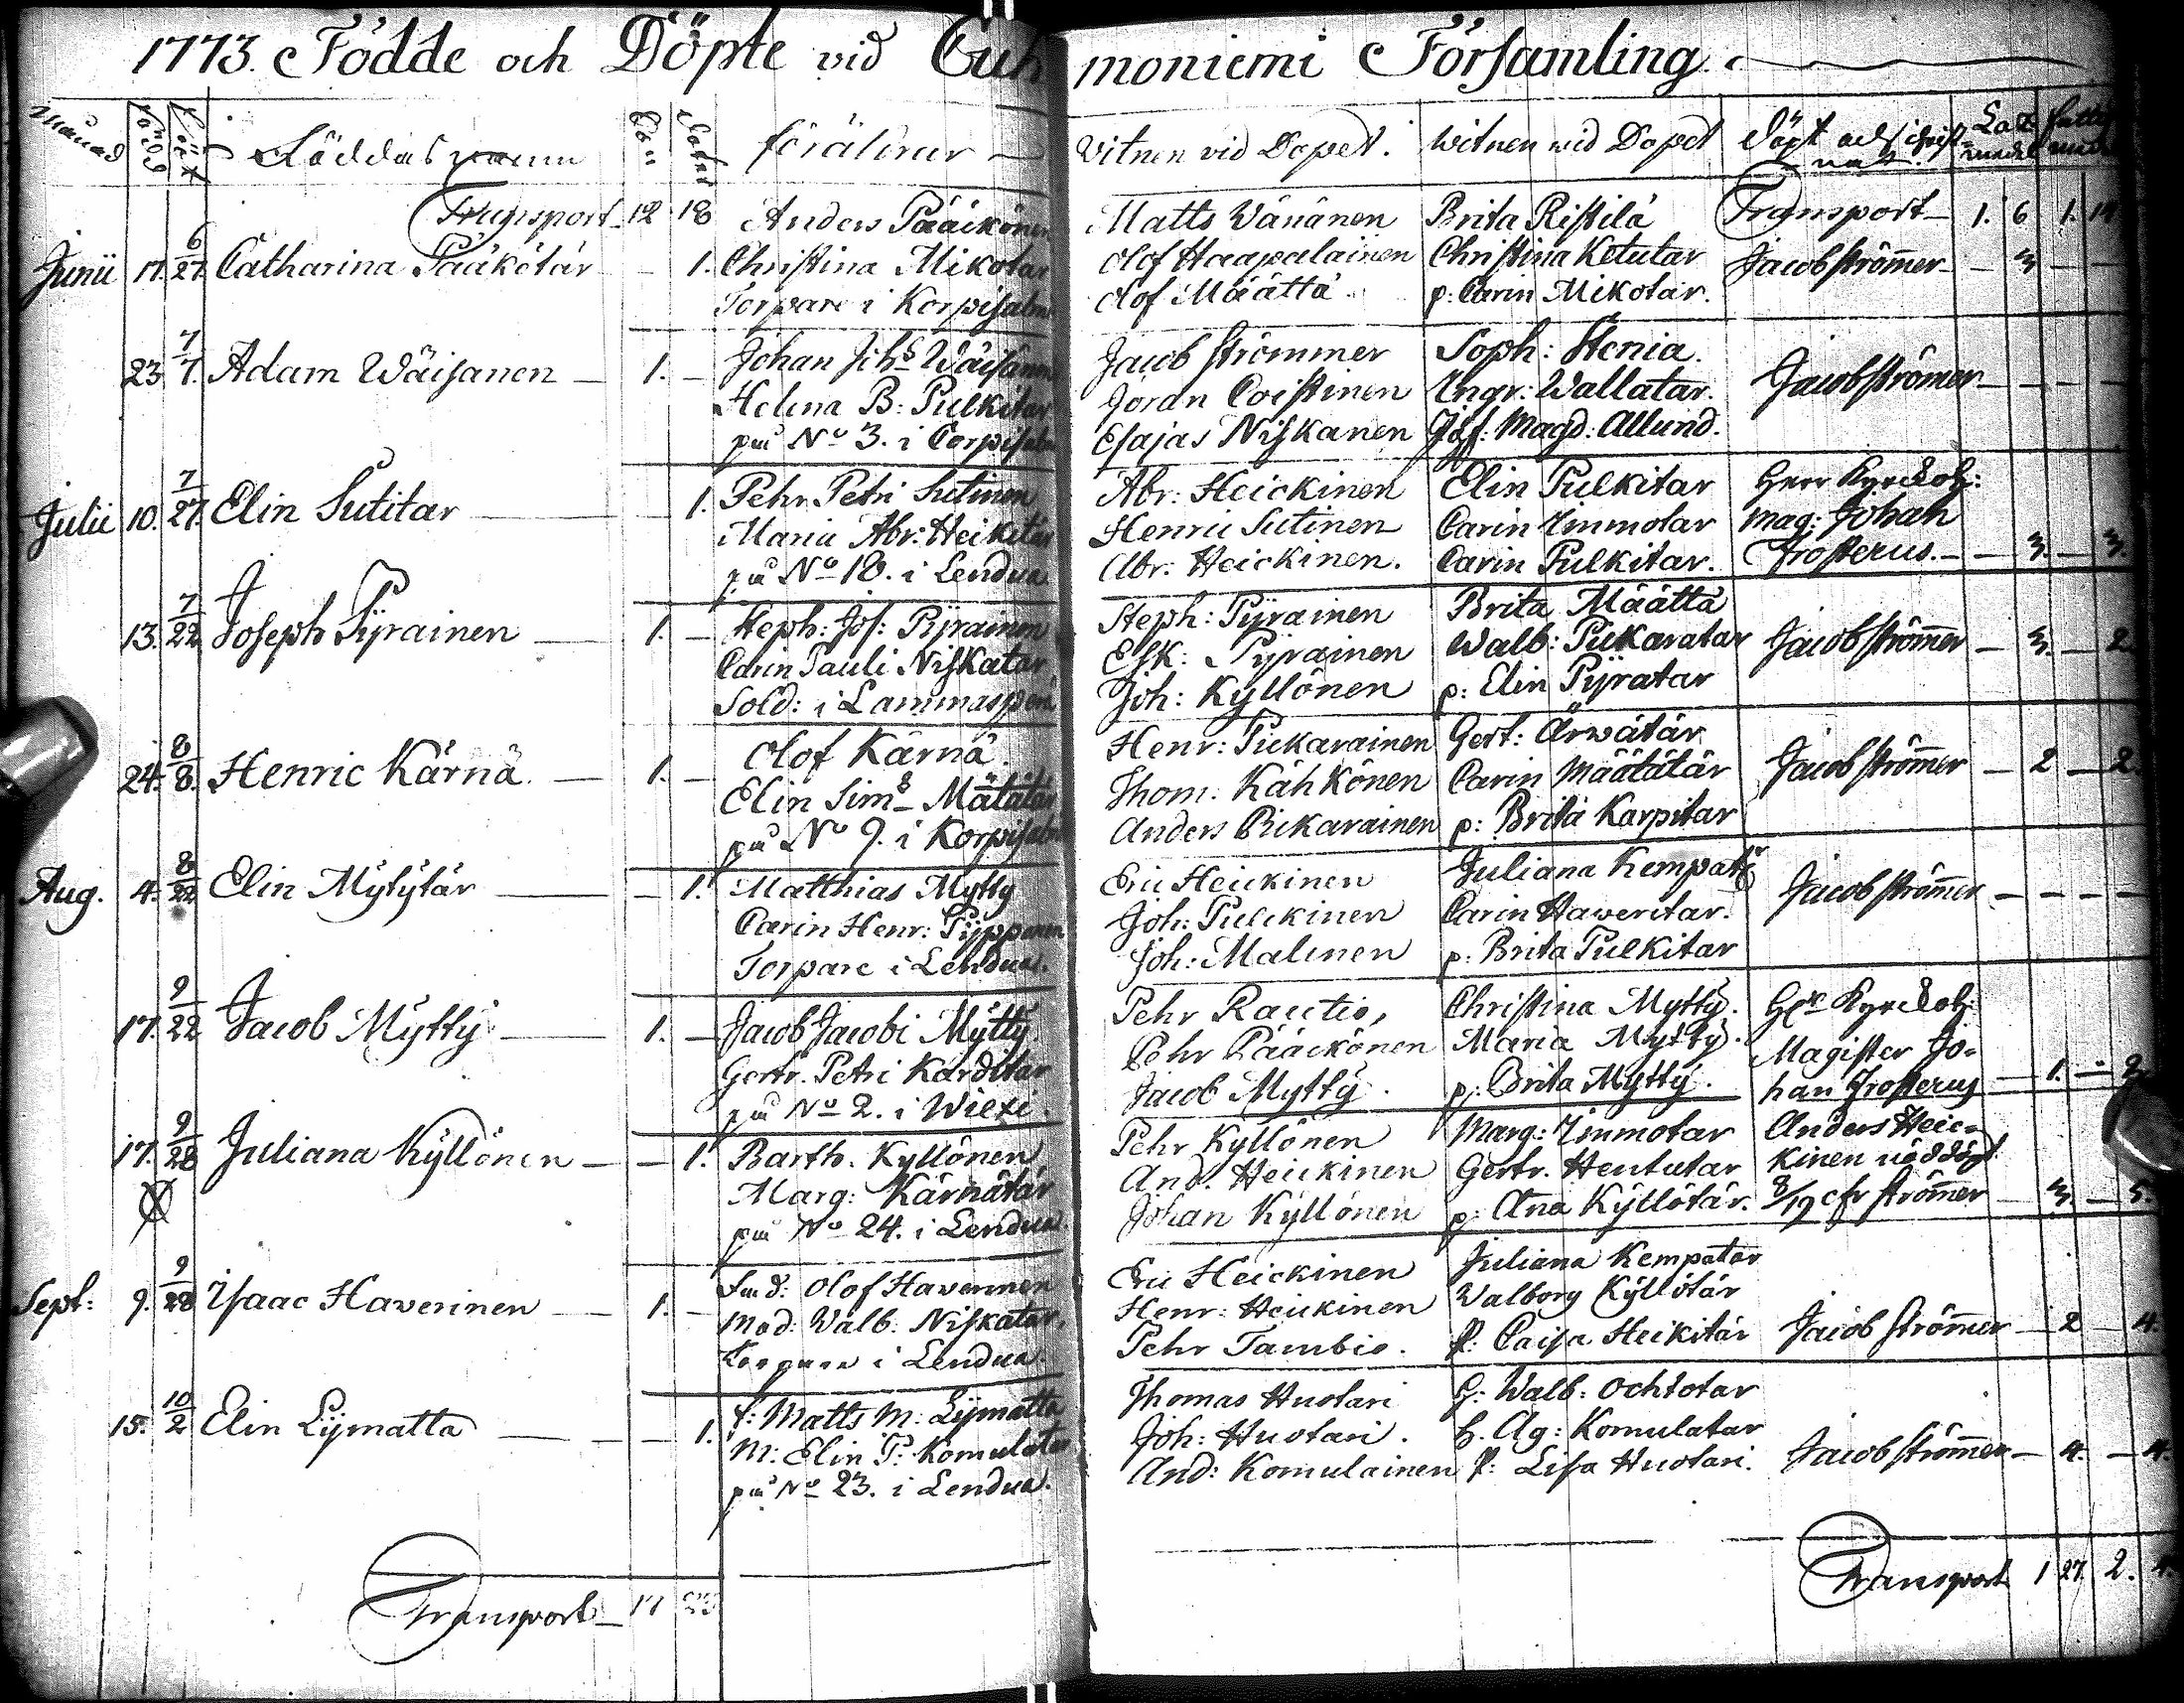 1773. Födde och Döpte vid Cuhmoniemi Församling.
Månad Född Döpt Föddas namn Söner Döttrar föräldrar Vitnen vid Dopet. Witnen vid Dopet Döpt och
Transport 12 18 Anders Pääikönen Matts Wänänen Brita Ristilä Transport 1. 6 1.
Junii 17. 6/27 Catharina Pääkötär 1. Christina Mikotar Olof Haapalainen Christina Ketutar Jacob Strömer 3
Torpare i Korpisalmi Olof Määttä p: Carin Mikotar.
Johan Johs Wäisänen Jacob Strömmer Soph: Stenia.
23. 7/7. Adam Wäisanen 1. Helena B: Pulkitar Jöran Coistinen Ingr: Wallatar. Jacob Strömer
på No 3. i Corpisalmi Esajas Niskanen Jgf: Magd: Allund.
Julii 10. 7/27. Elin Sutitar 1. Pehr Petri Sutinen Abr: Heickinen Elin Pulkitar Herr Kyrckoh:
Maria Abr: Heikitar Henric Sutinen Carin Immotar Mag: Johan
på No 18. i Lendua Abr. Heickinen. Carin Pulkitar. Frosterus. 3. 3.
13. 7/22 Joseph Pyrainen 1. Steph: Jos: Pyrainen Steph: Pyrainen Brita Määttä
Carin Pauli Niskatar Esk: Pyrainen Walb: Pukaratar Jacob Strömer 3. 2.
Sold: i Lammasperä Joh: Kyllönen p: Elin Pyratar
24. 8/8. Henric Kärnä. 1. Olof Kärnä. Henr: Pickarainen Gert: Ärwätär
Elin Sims Mätätär Thom: Kähkönen Carin Määtätär Jacob Strömer 2 2.
på No 9. i Korpisalmi Anders Pikarainen p: Brita Karpitar
Aug. 4. 8/22 Elin Mytytär 1. Matthias Mytty Eric Heickinen Juliana Kempatr
Carin Henr: Pyppönen Joh: Pulckinen Carin Haveritar. Jacob Strömer
Torpare i Lendua. Joh: Malinen p: Brita Pulkitar
17. 9/22 Jacob Mytty 1. Jacob Jacobi Mytty Pehr Rautio, Christina Mytty. Hr Kyrckoh:
Gertr. Petri Karditar Pehr Pääckönen Maria Mytty. Magister Jo-
på No 2. i Wiexi. Jacob Mytty. p: Brita Mytty. han Frosterus 1. 2.
17. 9/28 Juliana Kyllönen 1. Barth. Kyllönen Pehr Kyllönen Marg: Immotar Anders Heic-
Marg: Kärnätär And. Heickinen Gertr. Hentutar kinen nöddöpt
på No 24. i Lendua. Johan Kyllönen p: Ana Kyllötär. 8/19 cfr Strömer 3. 5.
Sept: 9. 9/28 Isaac Haverinen 1. Olof Haverinen Eric Heickinen Juliana Kempatar
Mod: Walb. Niskatar, Henr: Heickinen Walborg Kyllötär
Torpare i Lendua. Pehr Tambio. p: Caisa Heikitär Jacob Strömer 2 4.
15. 10/2 Elin Lymatta 1. f: Matts M: Lymatta Thomas Huotari H: Walb: Ochtotar
M: Elin P: Komulatar Joh: Huotari. H. Ag: Komulatar
på No 23. i Lendua. And: Komulainen P: Lisa Huotari. Jacob Strömer 4. 4.
Transport 17 23 Transport 1 27. 2.